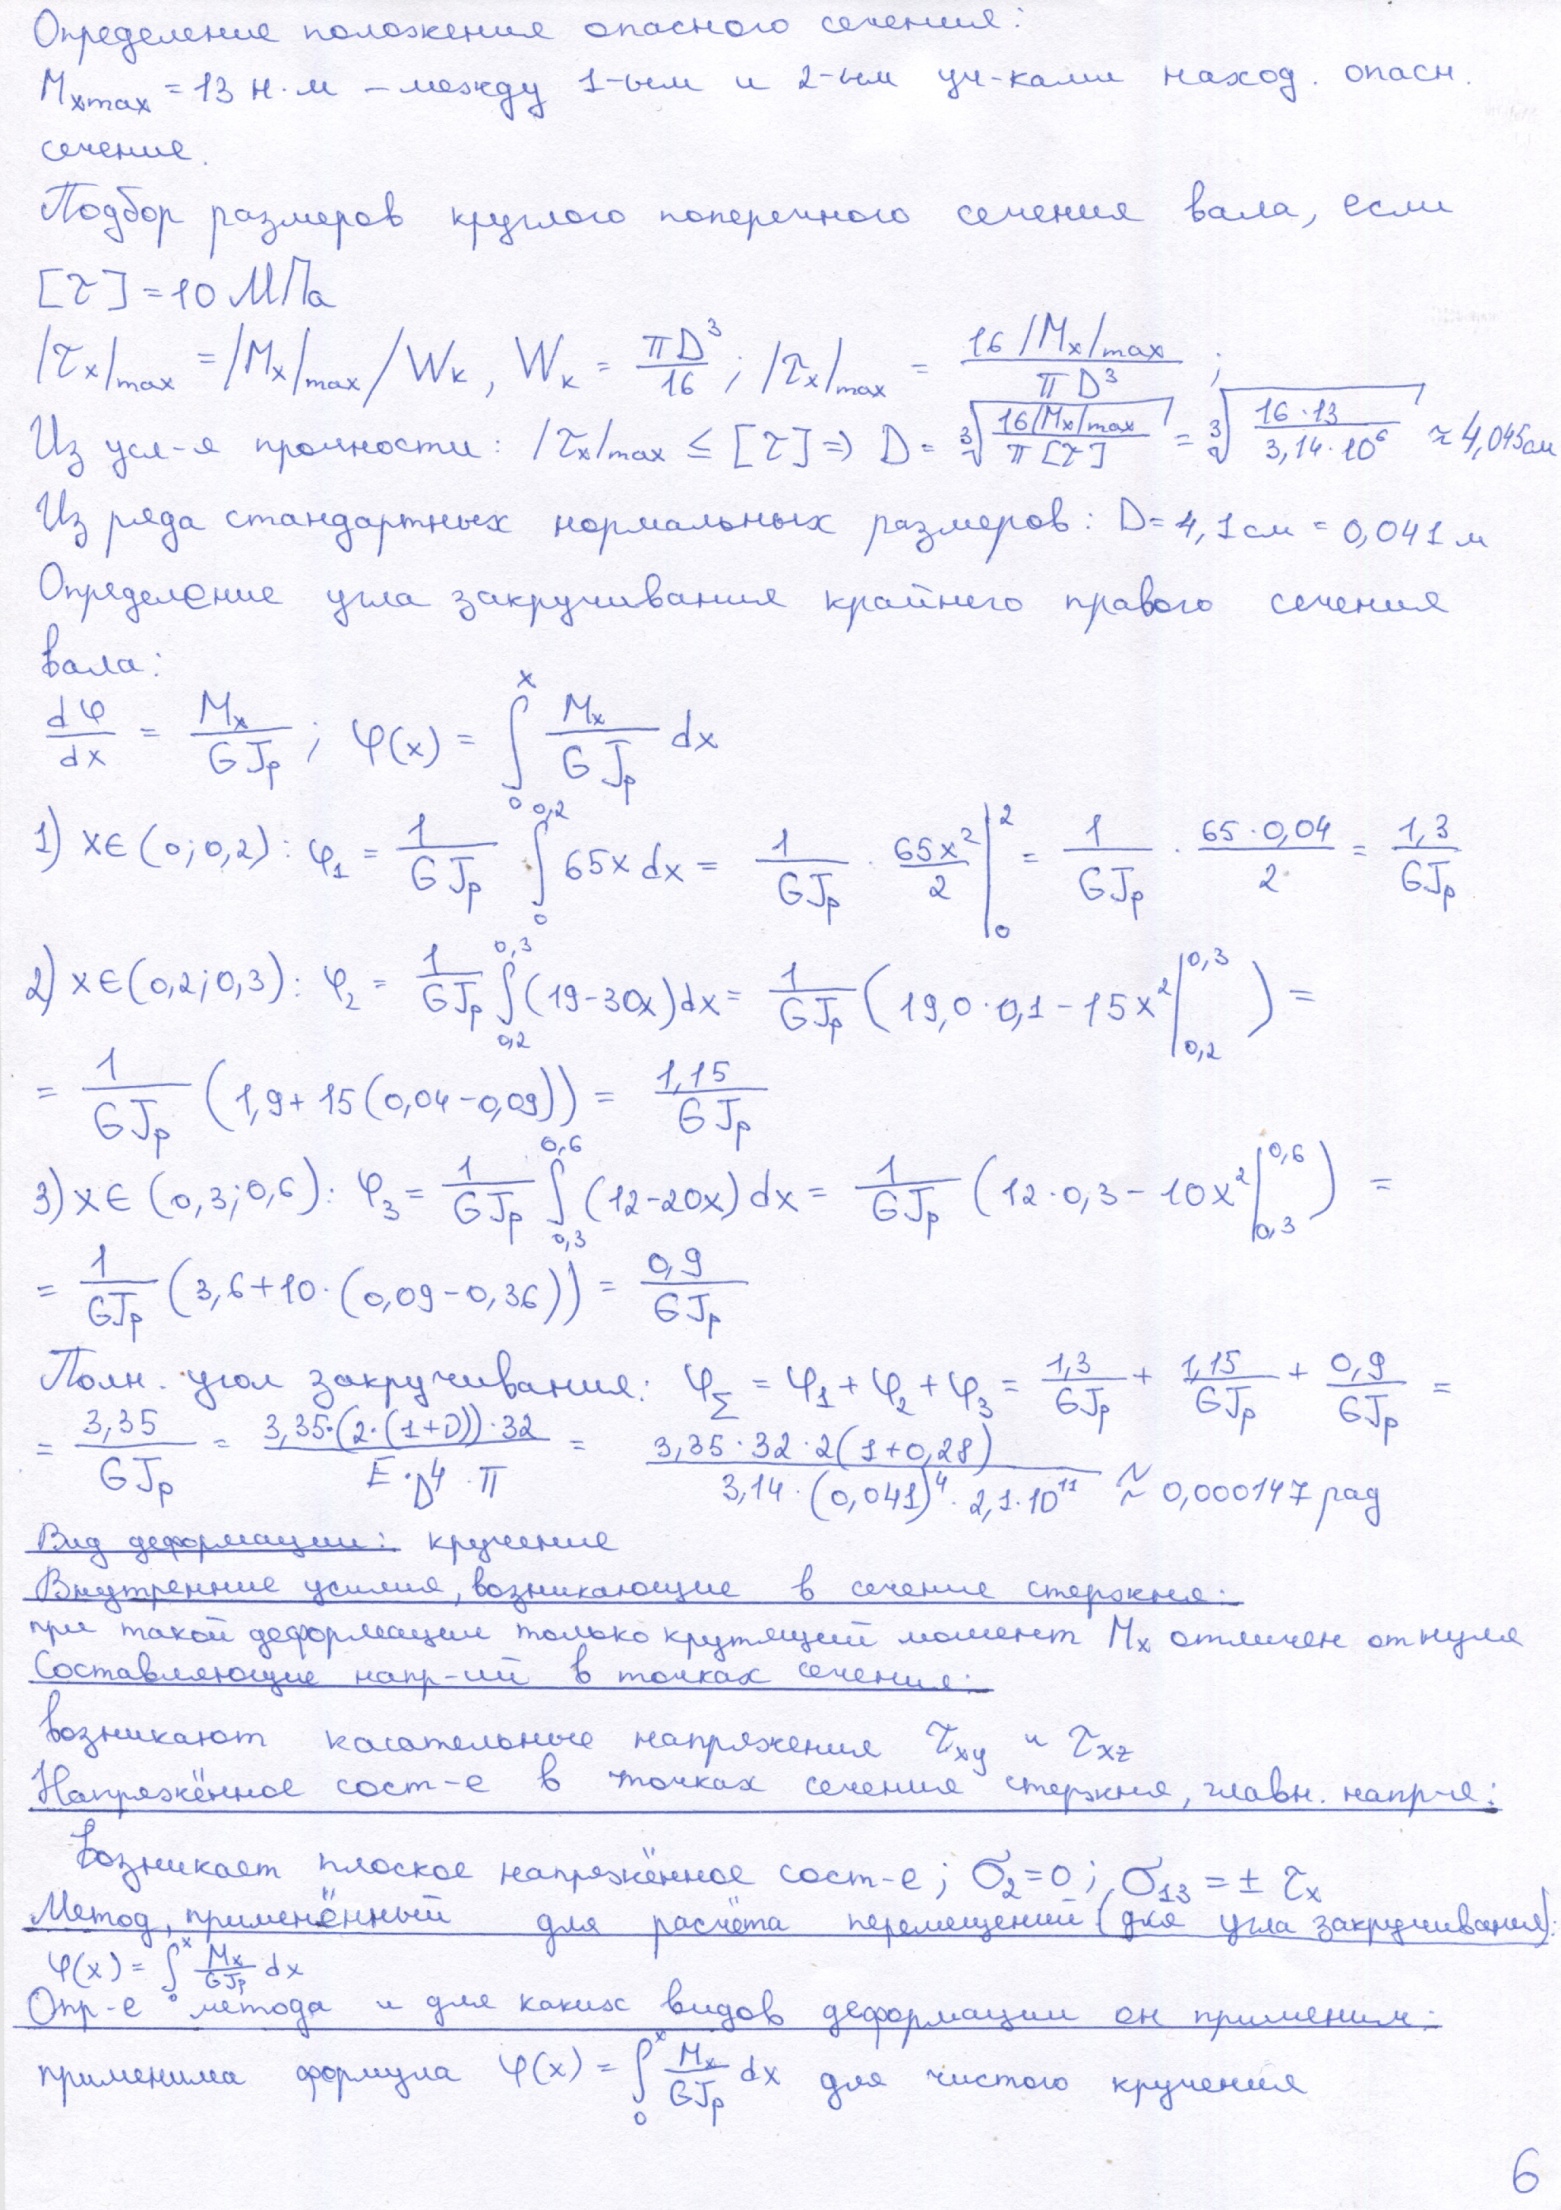 Определение положения опасного сечения:
M_xmax = 13 н·м – между 1-ым и 2-ым уч-ками наход. опасн.
сечение.
Подбор размеров круглого поперечного сечения вала, если
[τ] = 10 МПа
|τ_x|_max = |M_x|_max / W_к, W_к = πD³/16; |τ_x|_max = 16|M_x|_max / πD³;
Из усл-я прочности: |τ_x|_max ≤ [τ] => D = ∛(16|M_x|_max / π[τ]) = ∛(16·13 / 3,14·10⁶) ≈ 4,045 см
Из ряда стандартных нормальных размеров: D = 4,1 см = 0,041 м
Определение угла закручивания крайнего правого сечения
вала:
dφ/dx = M_x/GJ_p; φ(x) = ∫₀ˣ M_x/GJ_p dx
1) x∈(0;0,2): φ₁ = 1/GJ_p ∫₀^0,2 65x dx = 1/GJ_p · 65x²/2 |₀² = 1/GJ_p · 65·0,04/2 = 1,3/GJ_p
2) x∈(0,2;0,3): φ₂ = 1/GJ_p ∫_0,2^0,3 (19-30x)dx = 1/GJ_p (19,0·0,1 - 15x²|_0,2^0,3) =
= 1/GJ_p (1,9+15(0,04-0,09)) = 1,15/GJ_p
3) x∈(0,3;0,6): φ₃ = 1/GJ_p ∫_0,3^0,6 (12-20x)dx = 1/GJ_p (12·0,3 - 10x²|_0,3^0,6) =
= 1/GJ_p (3,6+10·(0,09-0,36)) = 0,9/GJ_p
Полн. угол закручивания: φ_Σ = φ₁+φ₂+φ₃ = 1,3/GJ_p + 1,15/GJ_p + 0,9/GJ_p =
= 3,35/GJ_p = 3,35·(2·(1+ν))·32 / E·D⁴·π = 3,35·32·2(1+0,28) / 3,14·(0,041)⁴·2,1·10¹¹ ≈ 0,000147 рад
Вид деформации: кручение
Внутренние усилия, возникающие в сечение стержня:
при такой деформации только крутящий момент M_x отличен от нуля
Составляющие напр-ий в точках сечения:
возникают касательные напряжения τ_xy и τ_xz
Напряжённое сост-е в точках сечения стержня, главн. напр-я:
Возникает плоское напряжённое сост-е; σ₂=0; σ₁₃ = ± τ_x
Метод, применённый для расчёта перемещений (для угла закручивания):
φ(x) = ∫₀ˣ M_x/GJ_p dx
Опр-е метода и для каких видов деформации он применим:
применима формула φ(x) = ∫₀ˣ M_x/GJ_p dx для чистого кручения
6